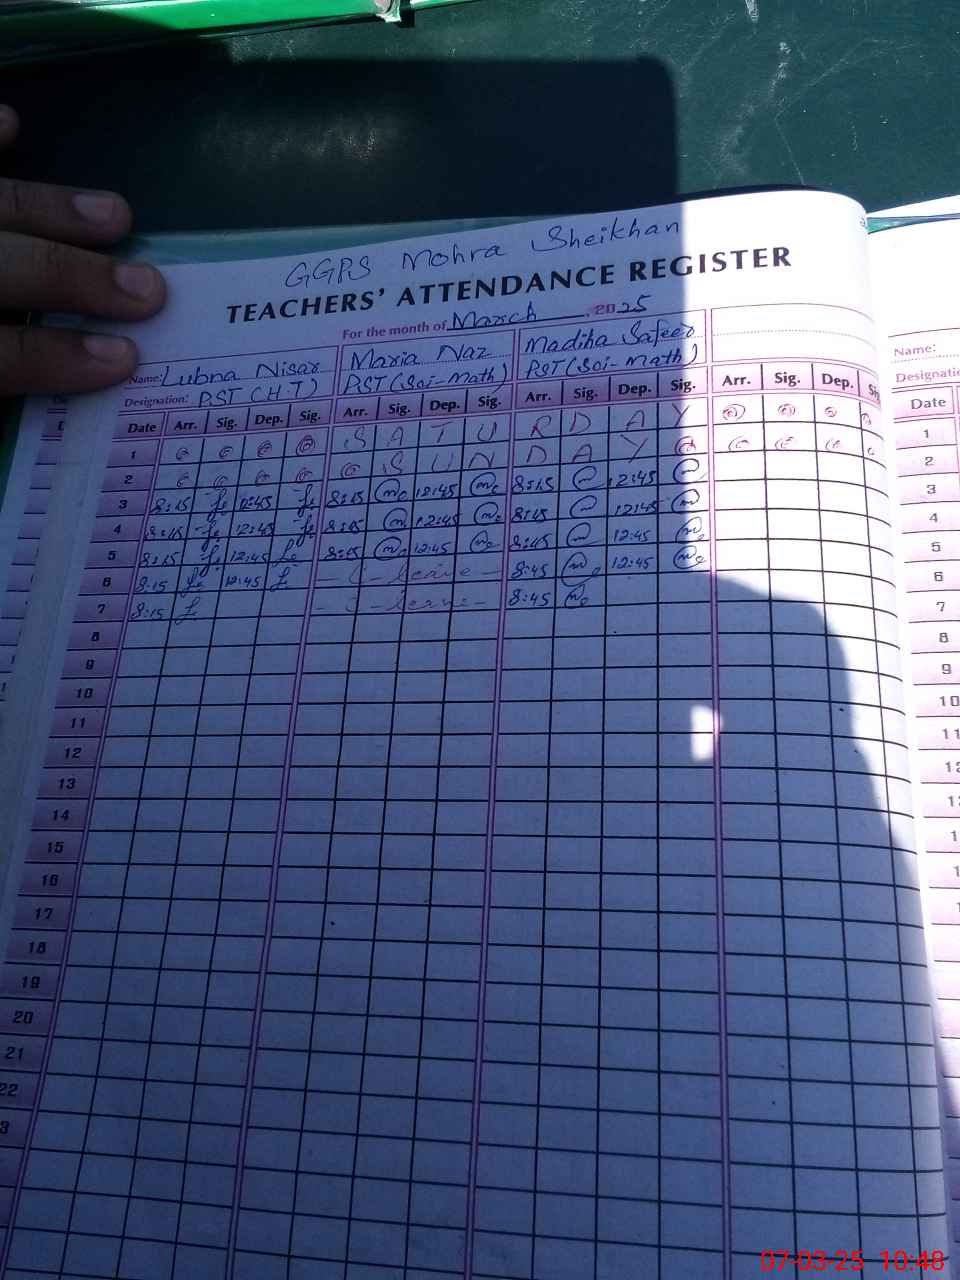 GGPS Mohra Sheikhan
TEACHERS' ATTENDANCE REGISTER
For the month of March, 2025
Name: Lubna Nisar Maria Naz Madiha Safeer
Designation: PST (H.T) PST (Sci-Math) PST (Sci-Math)
Date Arr. Sig. Dep. Sig. Arr. Sig. Dep. Sig. Arr. Sig. Dep. Sig. Arr. Sig. Dep.
1 S A T U R D A Y
2 S U N D A Y
3 8:15 12:45 8:15 12:45 8:15 12:45
4 8:15 12:45 12:45 12:45
5 8:15 12:45 12:45 12:45
6 8:15 12:45 leave 8:45 12:45
7 8:15 leave 8:45
8
9
10
11
12
13
14
15
16
17
18
19
20
21
22
3
Name:
Date
1
2
3
4
5
6
7
8
9
10
11
07-03-25 10:48